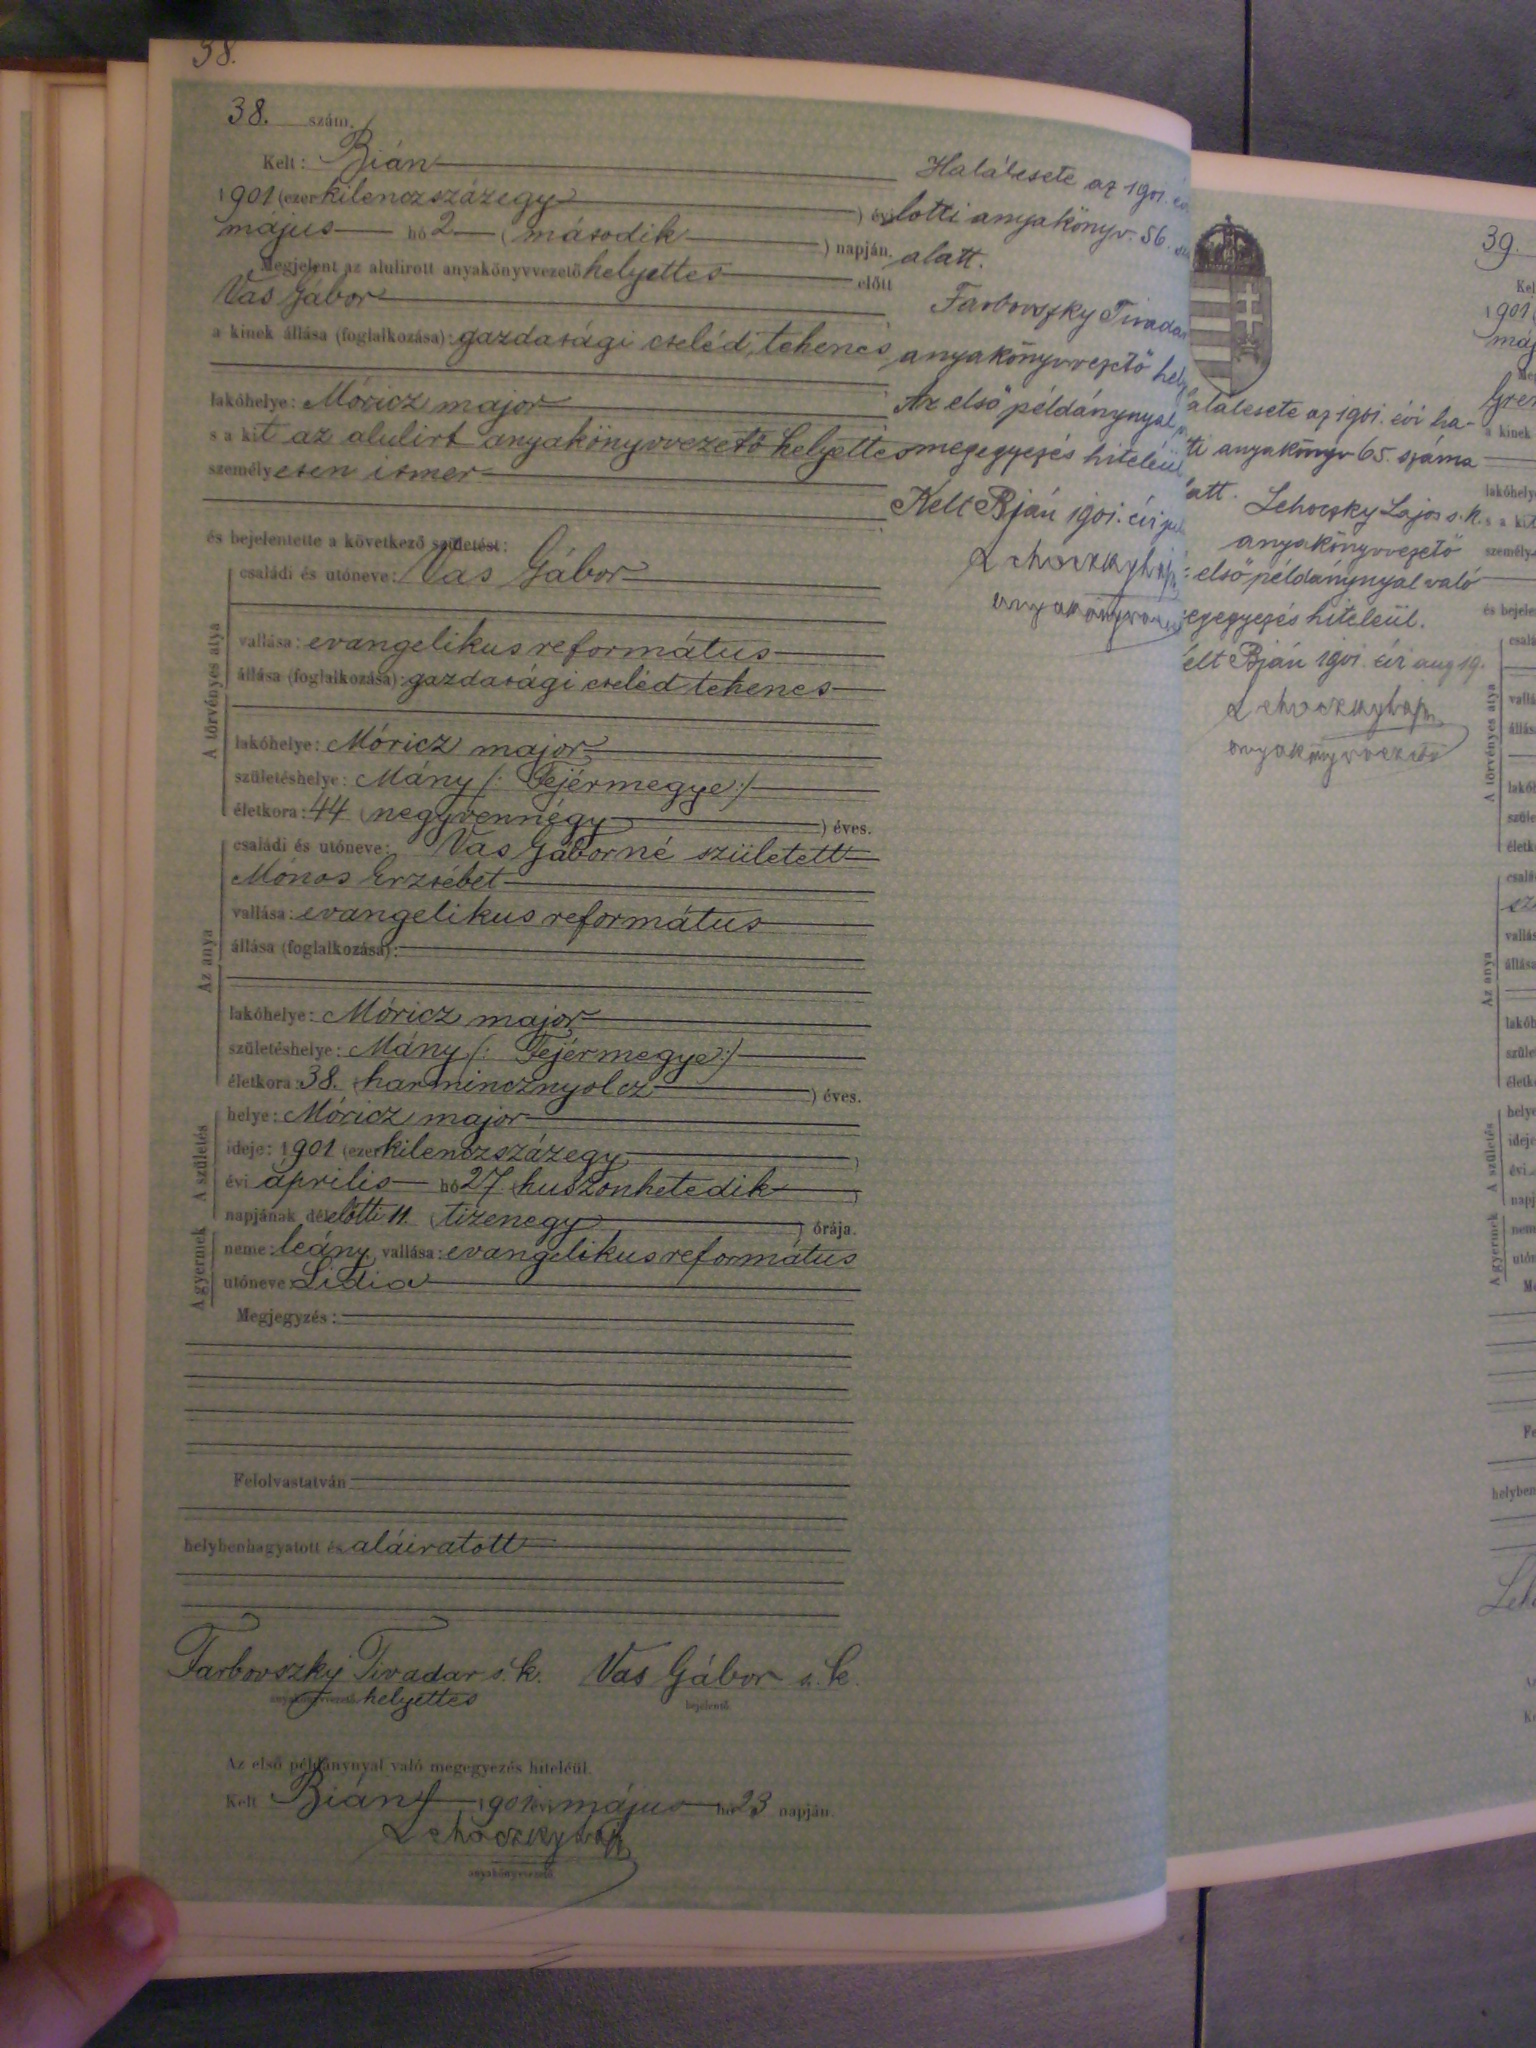 38.
38. szám.
Kelt: Bián
1901 (ezerkilenczszázegy) évi
május hó 2 (második) napján.
Megjelent az alulirott anyakönyvvezető helyettes előtt
Vas Gábor
a kinek állása (foglalkozása): gazdasági cseléd, tehenes
lakóhelye: Móricz major
s a kit az alulirt anyakönyvvezető helyettes
személyesen ismer
és bejelentette a következő születést:
A törvényes atya
családi és utóneve: Vas Gábor
vallása: evangelikus református
állása (foglalkozása): gazdasági cseléd tehenes
lakóhelye: Móricz major
születéshelye: Mány /: Fejérmegye :/
életkora: 44 (negyvennégy) éves.
Az anya
családi és utóneve: Vas Gáborné született
Mónos Erzsébet
vallása: evangelikus református
állása (foglalkozása):
lakóhelye: Móricz major
születéshelye: Mány /: Fejérmegye :/
életkora: 38. (harmincznyolcz) éves.
A születés
helye: Móricz major
ideje: 1901 (ezerkilenczszázegy)
évi április hó 27 (huszonhetedik)
napjának délelőtti 11. (tizenegy) órája.
A gyermek
neme: leány, vallása: evangelikus református
utóneve: Lidia
Megjegyzés:
Felolvastatván
helybenhagyatott és aláiratott
Farbovszky Tivadar s. k. Vas Gábor s. k.
helyettes bejelentő.
Az első példánynyal való megegyezés hiteléül.
Kelt Bián, 1901 évi május hó 23 napján.
Lehoczky Lajos
anyakönyvvezető.
Halálesete az 1901.
lotti anyakönyv. 56.
alatt.
Farbovszky Tivadar
anyakönyvvezető
Az első példánynyal
megegyezés hiteléül
Kelt Bján 1901. évi
Lehoczky Lajos
alálesete az 1901. évi ha-
ti anyakönyv 65. száma
att.
Lehoczky Lajos s. k.
anyakönyvvezető
első példánynyal való
egegyezés hiteléül.
elt Bján 1901. évi aug 19.
Lehoczky Lajos
anyakönyvvezető
39.
1901
lakóhely
személy
és bejele
A törvényes atya
csalá
vallá
állás
lakó
szüle
életk
Az anya
csalá
vallás
állása
lakóh
szüle
életk
A születés
helye
ideje
évi
napj
A gyermek
neme
utón
helyben